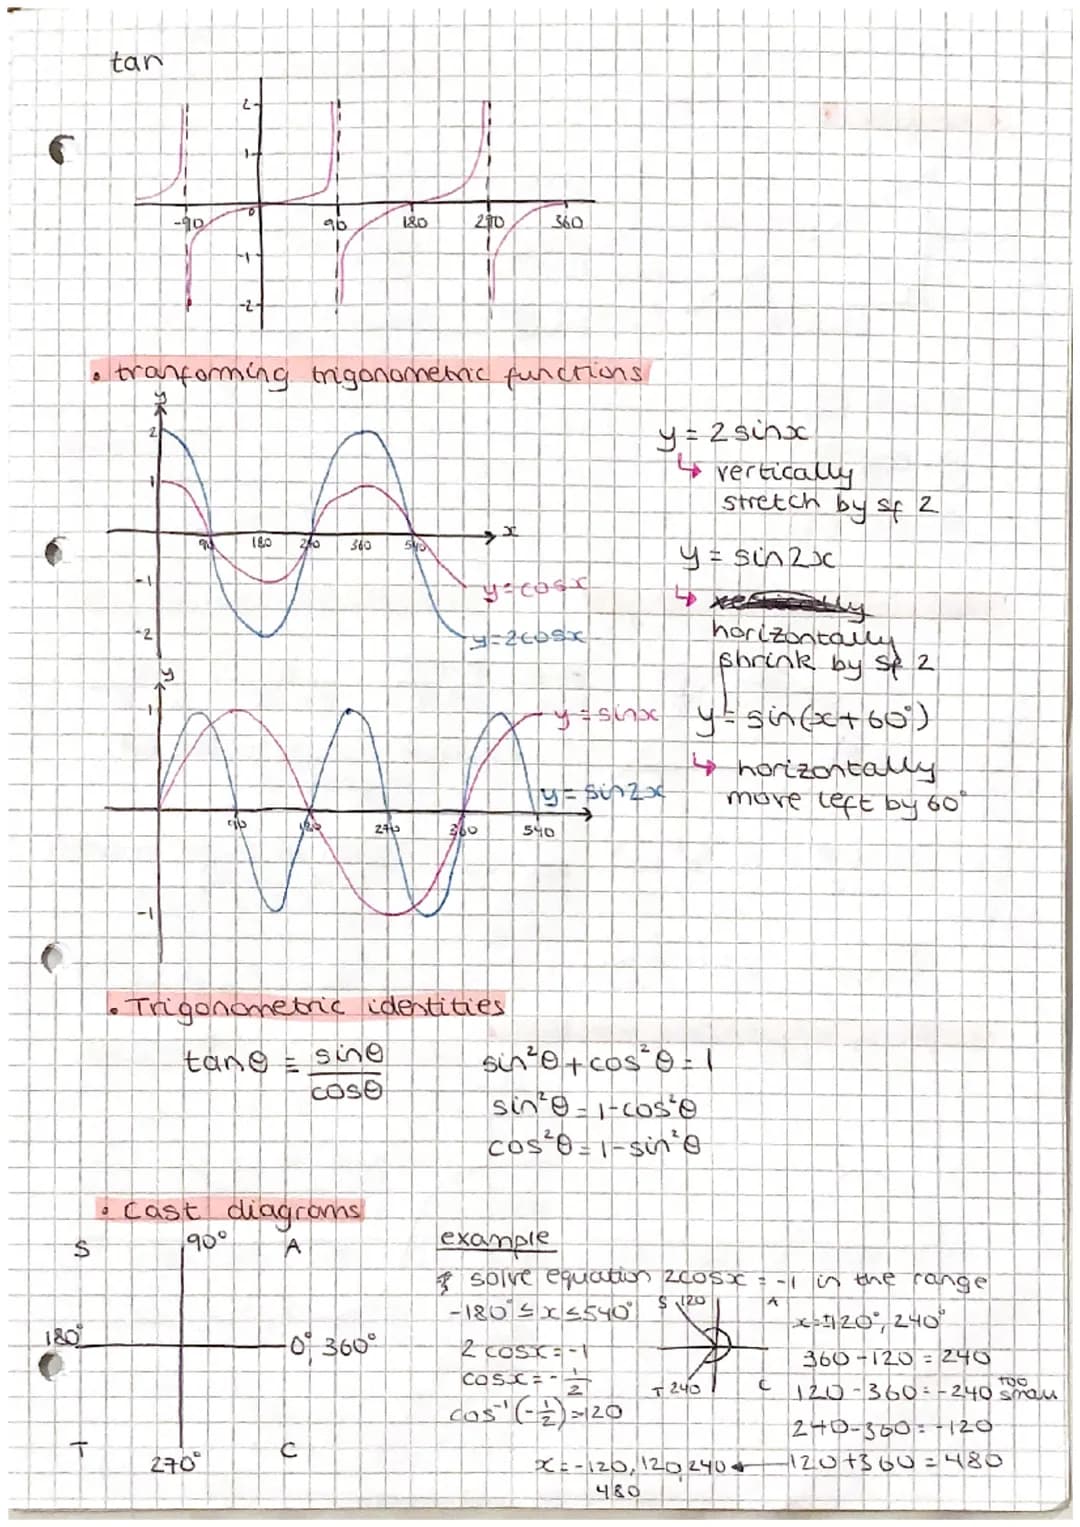 tan
2
1
0
-90
90
180
270
360
-1
-2
• tranforming trigonometric functions
y
2
1
90
180
270
360
540
x
-1
-2
y=cosx
y=2cosx
y = 2sinx
↳ vertically
stretch by sf 2
y = sin2x
↳
horizontally
shrink by sf 2
y = sin(x+60°)
↳ horizontally
move left by 60°
y
1
90
180
270
360
540
-1
y=sinx
y=sin2x
• Trigonometric identities
tanθ = sinθ/cosθ
sin²θ+cos²θ=1
sin²θ=1-cos²θ
cos²θ=1-sin²θ
• cast diagrams
S
90°
A
180°
0°, 360°
T
270°
C
example
solve equation 2cosx = -1 in the range
-180° ≤ x ≤ 540°
2cosx=-1
cosx=-1/2
cos⁻¹(-1/2)=120
S
120
A
T
240
C
x=±120°, 240°
360-120=240
120-360=-240 too small
240-360=-120
120+360=480
x=-120, 120, 240
480